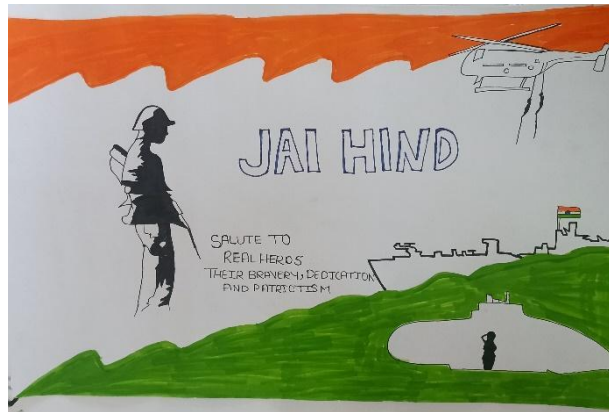 JAI HIND
SALUTE TO
REAL HEROS
THEIR BRAVERY, DEDICATION
AND PATRICTISM